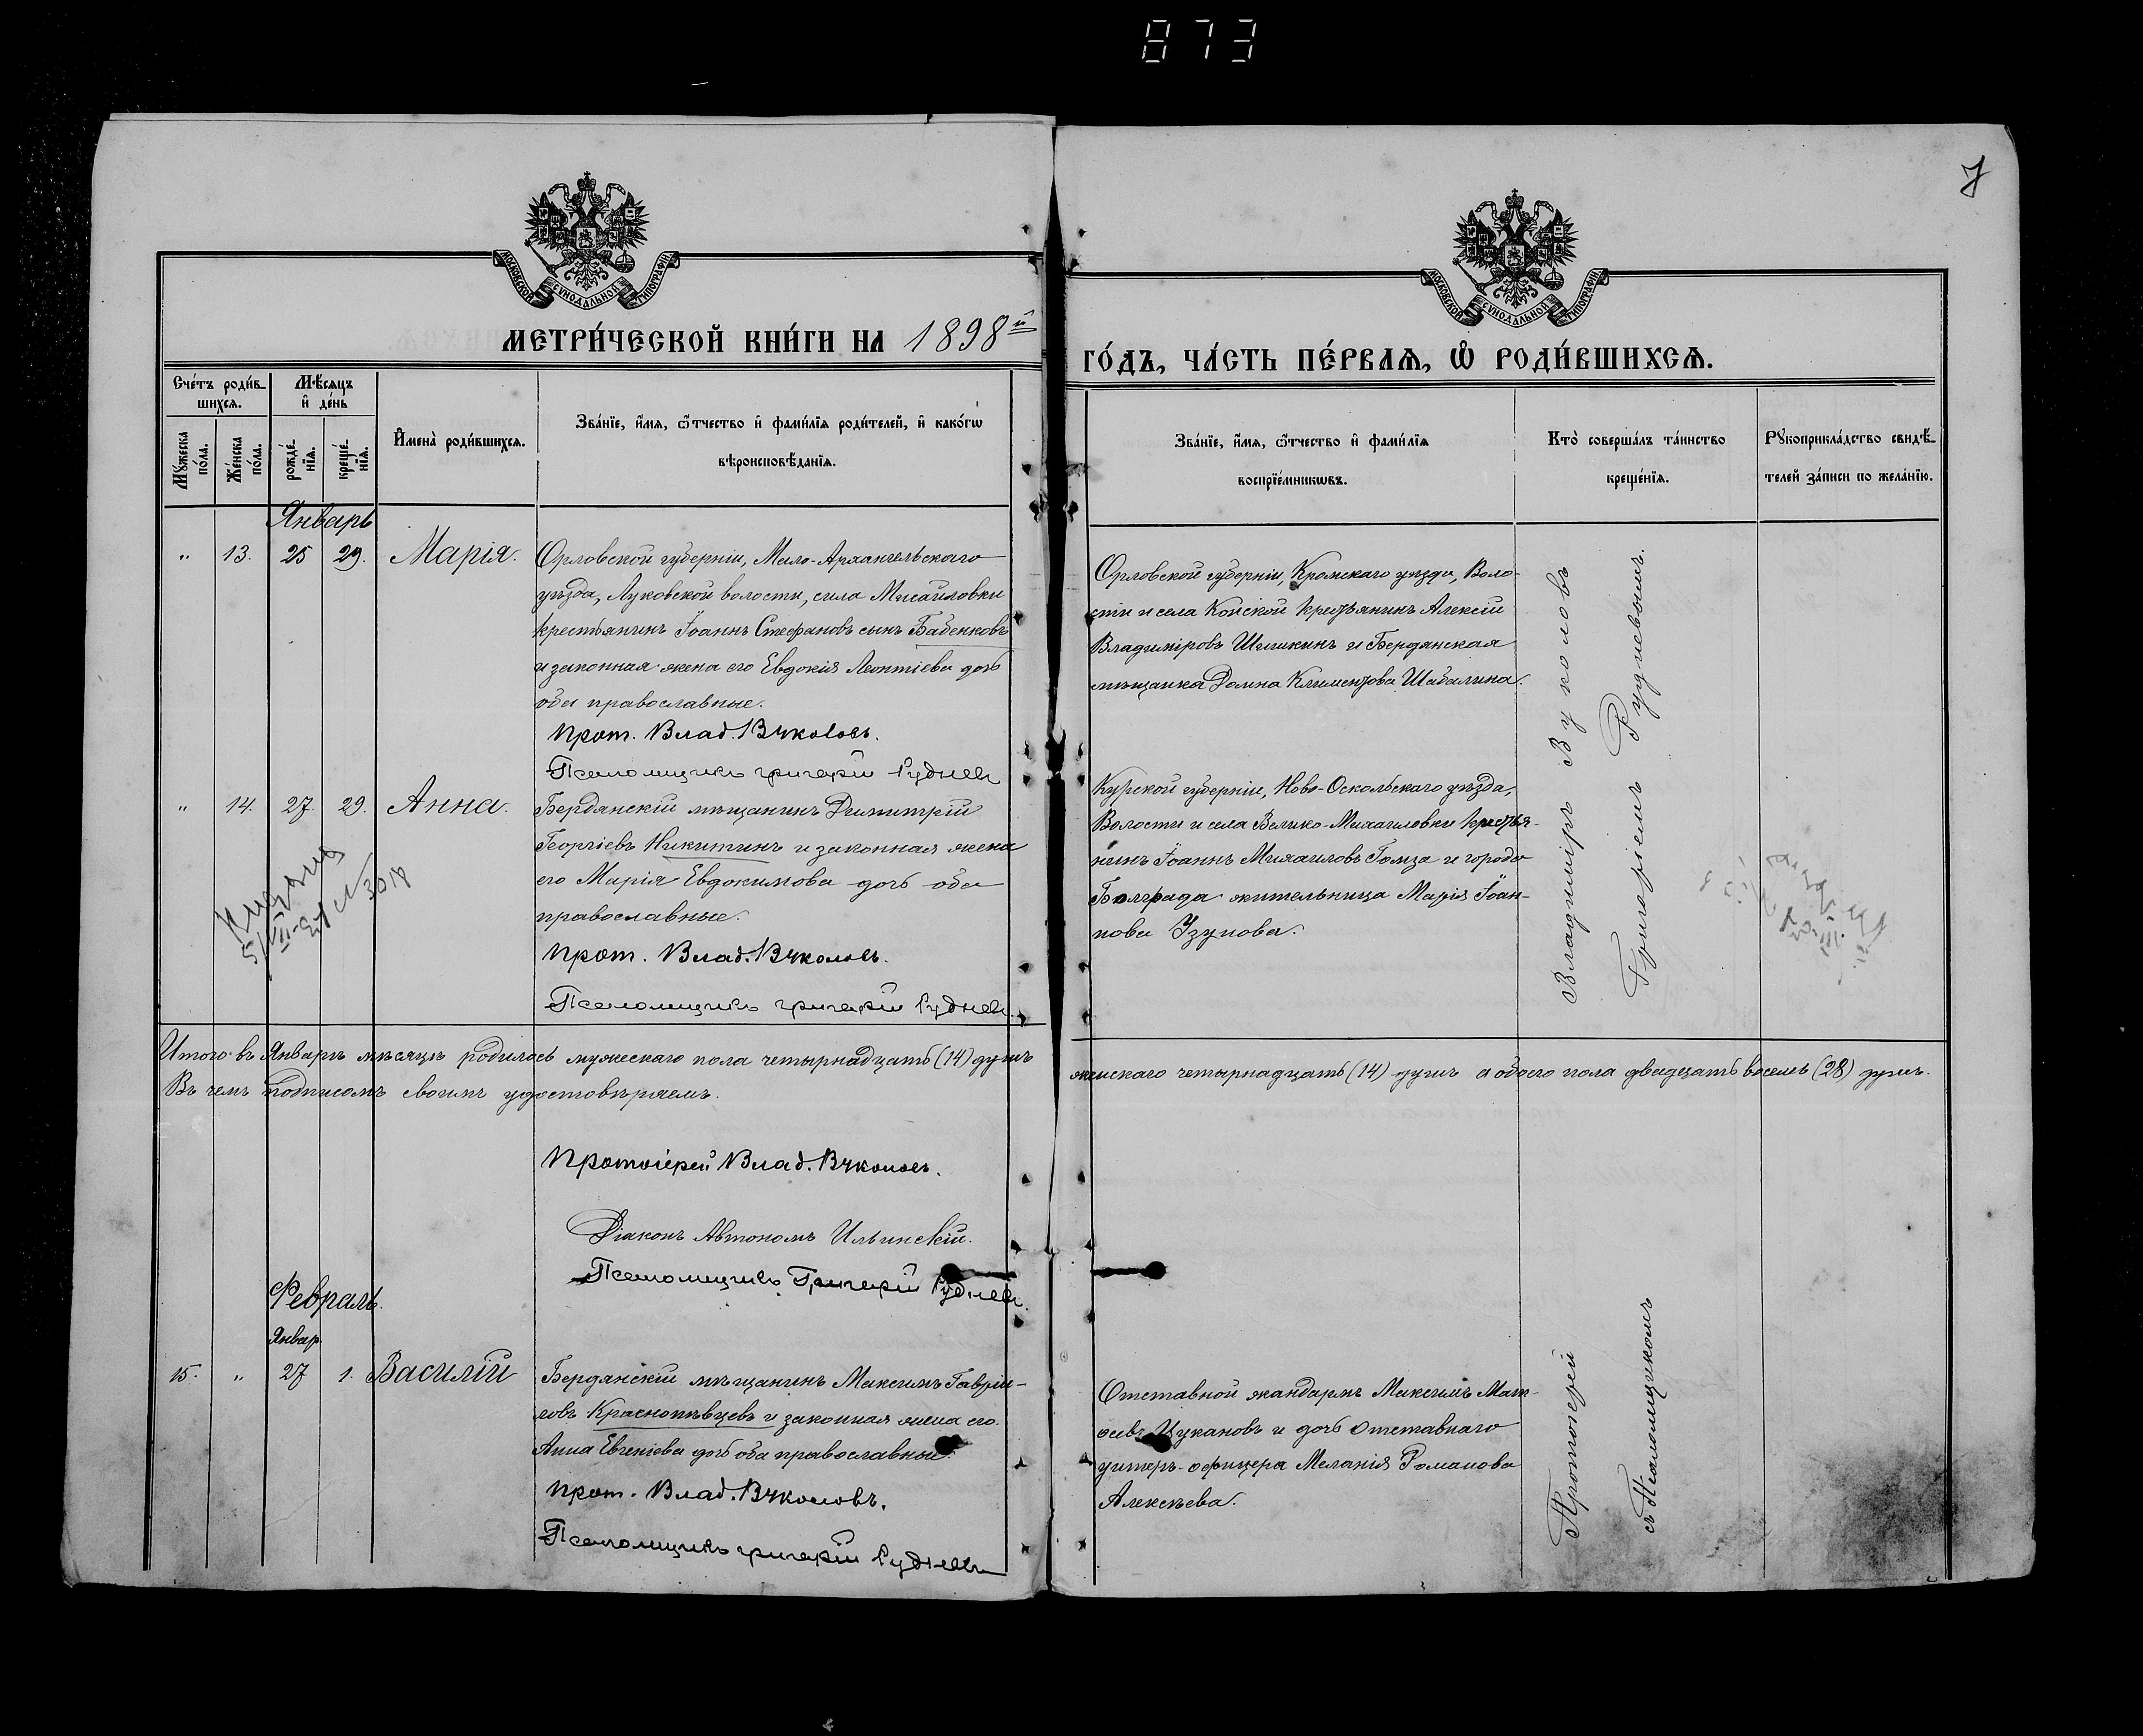 873
7
МОСКОВСКОЙ СѴНОДАЛЬНОЙ ТИПОГРАФІИ
МОСКОВСКОЙ СѴНОДАЛЬНОЙ ТИПОГРАФІИ
МЕТРИ́ЧЕСКОЙ КНИ́ГИ НА 1898й
ГО́ДЪ, ЧА́СТЬ ПЕ́РВАѦ, Ѡ҆ РОДИ́ВШИХСѦ.
Сче́тъ роди́в-
шихсѧ.
Мѣ́сѧцъ
и҆ де́нь
Мꙋ́жеска
по́ла.
Же́нска
по́ла.
рожде́-
нїѧ.
креще́-
нїѧ.
И҆мена̀ роди́вшихсѧ.
Зва́нїе, и҆́мѧ, ѻ҆́тчество и҆ фами́лїѧ роди́телей, и҆ како́гѡ
вѣроисповѣ́данїѧ.
Зва́нїе, и҆́мѧ, ѻ҆́тчество и҆ фами́лїѧ
воспрїе́мникѡвъ.
Кто̀ соверша́лъ та́инство
креще́нїѧ.
Рꙋкоприкла́дство свидѣ́-
телей за́писи по жела́нїю.
Январь
" 13. 25 29. Марія.
Орловской губерніи, Мало-Архангельскаго
уѣзда, Луковской волости, села Михайловки
крестьянинъ Іоаннъ Стефановъ сынъ Бабенковъ
и законная жена его Евдокія Леонтіева дочь
оба православные.
Прот. Влад. Вуколовъ.
Псаломщикъ Григорій Руднев
Орловской губерніи, Кромскаго уѣзда, Воло-
сти и села Конской крестьянинъ Алексій
Владиміровъ Шишкинъ и Бердянская
мѣщанка Домна Климентова Шабалина.
" 14. 27. 29. Анна.
Бердянскій мѣщанинъ Димитрій
Георгіевъ Никитинъ и законная жена
его Марія Евдокимова дочь оба
православные.
Прот. Влад. Вуколовъ.
Псаломщикъ Григорій Руднев.
Курской губерніи, Ново-Оскольскаго уѣзда,
Волости и села Велико-Михайловки крестья-
нинъ Іоаннъ Михаиловъ Гомза и города
Болграда жительница Марія Іоан-
нова Узунова.
Владиміръ Вуколовъ
Григоріемъ Рудневымъ.
Итого въ Январѣ мѣсяцѣ родилось мужескаго пола четырнадцать (14) душъ
женскаго четырнадцать (14) душъ а обоего пола двадцать восемь (28) душъ.
Въ чемъ подписомъ своимъ удостовѣряемъ.
Протоіерей Влад. Вуколовъ.
Діаконъ Автономъ Ильинскій.
Псаломщикъ Григорій Руднев.
Февраль.
Январ.
15. " 27 1. Василій
Бердянскій мѣщанинъ Максимъ Гаврiи-
ловъ Краснопѣвцевъ и законная жена его
Анна Евгеніева дочь оба православные.
Прот. Влад. Вуколовъ.
Псаломщикъ Григорій Руднев
Отставной жандармъ Максимъ Мат-
ѳеевъ Цукановъ и дочь отставнаго
унтеръ-офицера Меланія Романова
Алексѣева.
Протоіерей
съ Псаломщикомъ